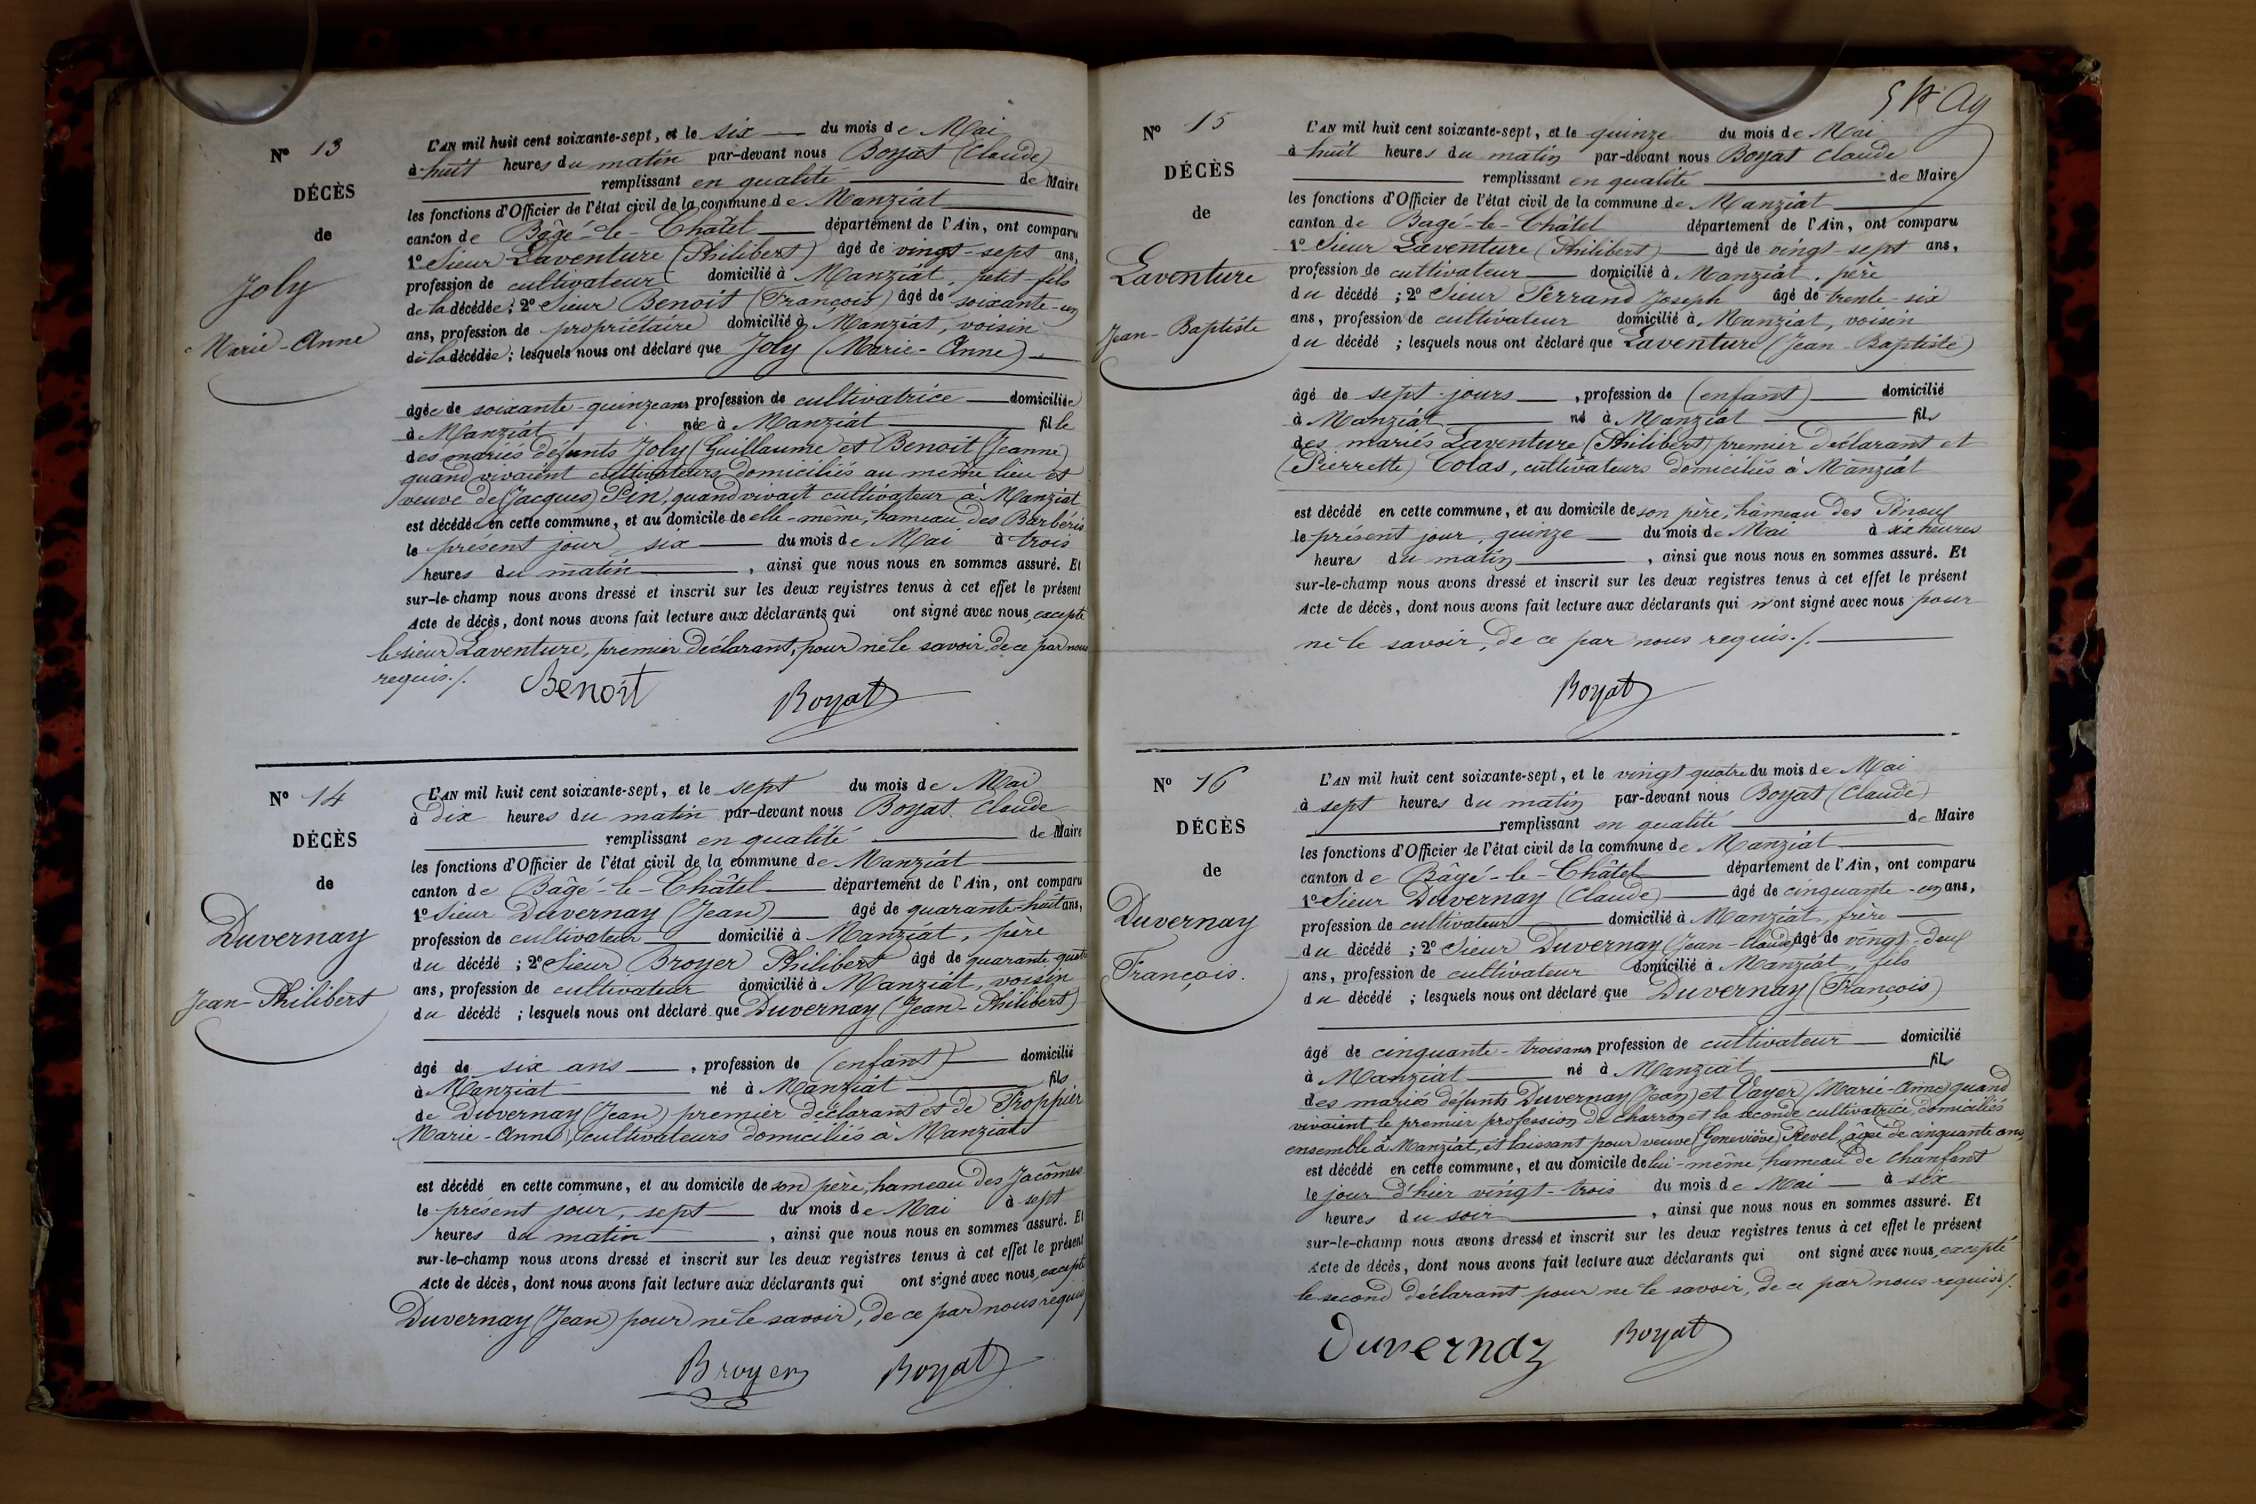 N° 13
DÉCÈS
de
Joly
Marie-Anne
L'AN mil huit cent soixante-sept, et le six du mois de Mai
à huit heures du matin par-devant nous Boyat (Claude)
remplissant en qualité de Maire
les fonctions d'Officier de l'état civil de la commune de Manziat
canton de Bâgé-le-Châtel département de l'Ain, ont comparu
1° Sieur Laventure (Philibert) âgé de vingt-sept ans,
profession de cultivateur domicilié à Manziat, petit-fils
de la décédée ; 2° Sieur Benoit (François) âgé de soixante-un
ans, profession de propriétaire domicilié à Manziat, voisin
de la décédée ; lesquels nous ont déclaré que Joly (Marie-Anne)
âgée de soixante-quinze ans profession de cultivatrice domiciliée
à Manziat née à Manziat fille
des mariés défunts Joly (Guillaume et Benoit (Jeanne)
quand vivaient cultivateurs domiciliés au même lieu et
veuve de (Jacques) Pin, quand vivait cultivateur à Manziat
est décédée en cette commune, et au domicile de elle-même, hameau des Barbéris
le présent jour six du mois de Mai à trois
heures du matin , ainsi que nous nous en sommes assuré. Et
sur-le-champ nous avons dressé et inscrit sur les deux registres tenus à cet effet le présent
Acte de décès, dont nous avons fait lecture aux déclarants qui ont signé avec nous, excepté
le sieur Laventure, premier déclarant, pour ne le savoir, de ce par nous
requis./.
Benoit Boyat
N° 14
DÉCÈS
de
Duvernay
Jean-Philibert
L'AN mil huit cent soixante-sept, et le sept du mois de Mai
à dix heures du matin par-devant nous Boyat Claude
remplissant en qualité de Maire
les fonctions d'Officier de l'état civil de la commune de Manziat
canton de Bâgé-le-Châtel département de l'Ain, ont comparu
1° Sieur Duvernay (Jean) âgé de quarante-huit ans,
profession de cultivateur domicilié à Manziat, père
du décédé ; 2° Sieur Broyer Philibert âgé de quarante-quatre
ans, profession de cultivateur domicilié à Manziat, voisin
du décédé ; lesquels nous ont déclaré que Duvernay (Jean-Philibert)
âgé de six ans , profession de (enfant) domicilié
à Manziat né à Manziat fils
de Duvernay (Jean) premier déclarant et de Froppier
(Marie-Anne) cultivateurs domiciliés à Manziat
est décédé en cette commune, et au domicile de son père, hameau des Jacômes
le présent jour, sept du mois de Mai à sept
heures du matin , ainsi que nous nous en sommes assuré. Et
sur-le-champ nous avons dressé et inscrit sur les deux registres tenus à cet effet le présent
Acte de décès, dont nous avons fait lecture aux déclarants qui ont signé avec nous, excepté
Duvernay (Jean) pour ne le savoir, de ce par nous requis
Broyer Boyat
N° 15
DÉCÈS
de
Laventure
Jean-Baptiste
L'AN mil huit cent soixante-sept, et le quinze du mois de Mai
à huit heures du matin par-devant nous Boyat Claude
remplissant en qualité de Maire
les fonctions d'Officier de l'état civil de la commune de Manziat
canton de Bagé-le-Châtel département de l'Ain, ont comparu
1° Sieur Laventure (Philibert) âgé de vingt-sept ans,
profession de cultivateur domicilié à Manziat, père
du décédé ; 2° Sieur Ferrand Joseph âgé de trente-six
ans, profession de cultivateur domicilié à Manziat, voisin
du décédé ; lesquels nous ont déclaré que Laventure (Jean-Baptiste)
âgé de sept jours , profession de (enfant) domicilié
à Manziat né à Manziat fils
des mariés Laventure (Philibert) premier déclarant et
(Pierrette) Colas, cultivateurs domiciliés à Manziat
est décédé en cette commune, et au domicile de son père, hameau des Pinoux
le présent jour, quinze du mois de Mai à six heures
heures du matin , ainsi que nous nous en sommes assuré. Et
sur-le-champ nous avons dressé et inscrit sur les deux registres tenus à cet effet le présent
Acte de décès, dont nous avons fait lecture aux déclarants qui n'ont signé avec nous pour
ne le savoir, de ce par nous requis./.
Boyat
N° 16
DÉCÈS
de
Duvernay
François.
L'AN mil huit cent soixante-sept, et le vingt quatre du mois de Mai
à sept heures du matin par-devant nous Boyat (Claude)
remplissant en qualité de Maire
les fonctions d'Officier de l'état civil de la commune de Manziat
canton de Bâgé-le-Châtel département de l'Ain, ont comparu
1° Sieur Duvernay (Claude) âgé de cinquante-un ans,
profession de cultivateur domicilié à Manziat, frère
du décédé ; 2° Sieur Duvernay (Jean-Claude) âgé de vingt-deux
ans, profession de cultivateur domicilié à Manziat, fils
du décédé ; lesquels nous ont déclaré que Duvernay (François)
âgé de cinquante-trois ans profession de cultivateur domicilié
à Manziat né à Manziat fils
des mariés défunts Duvernay (Jean) et Vayer (Marie-Anne) quand
vivaient le premier profession de charron et la seconde cultivatrice, domiciliés
ensemble à Manziat, et laissant pour veuve (Geneviève) Revel, âgée de cinquante ans,
est décédé en cette commune, et au domicile de lui-même, hameau de Chanfant
le jour d'hier vingt-trois du mois de Mai à six
heures du soir , ainsi que nous nous en sommes assuré. Et
sur-le-champ nous avons dressé et inscrit sur les deux registres tenus à cet effet le présent
Acte de décès, dont nous avons fait lecture aux déclarants qui ont signé avec nous, excepté
le second déclarant pour ne le savoir, de ce par nous requis./.
Duvernay Boyat